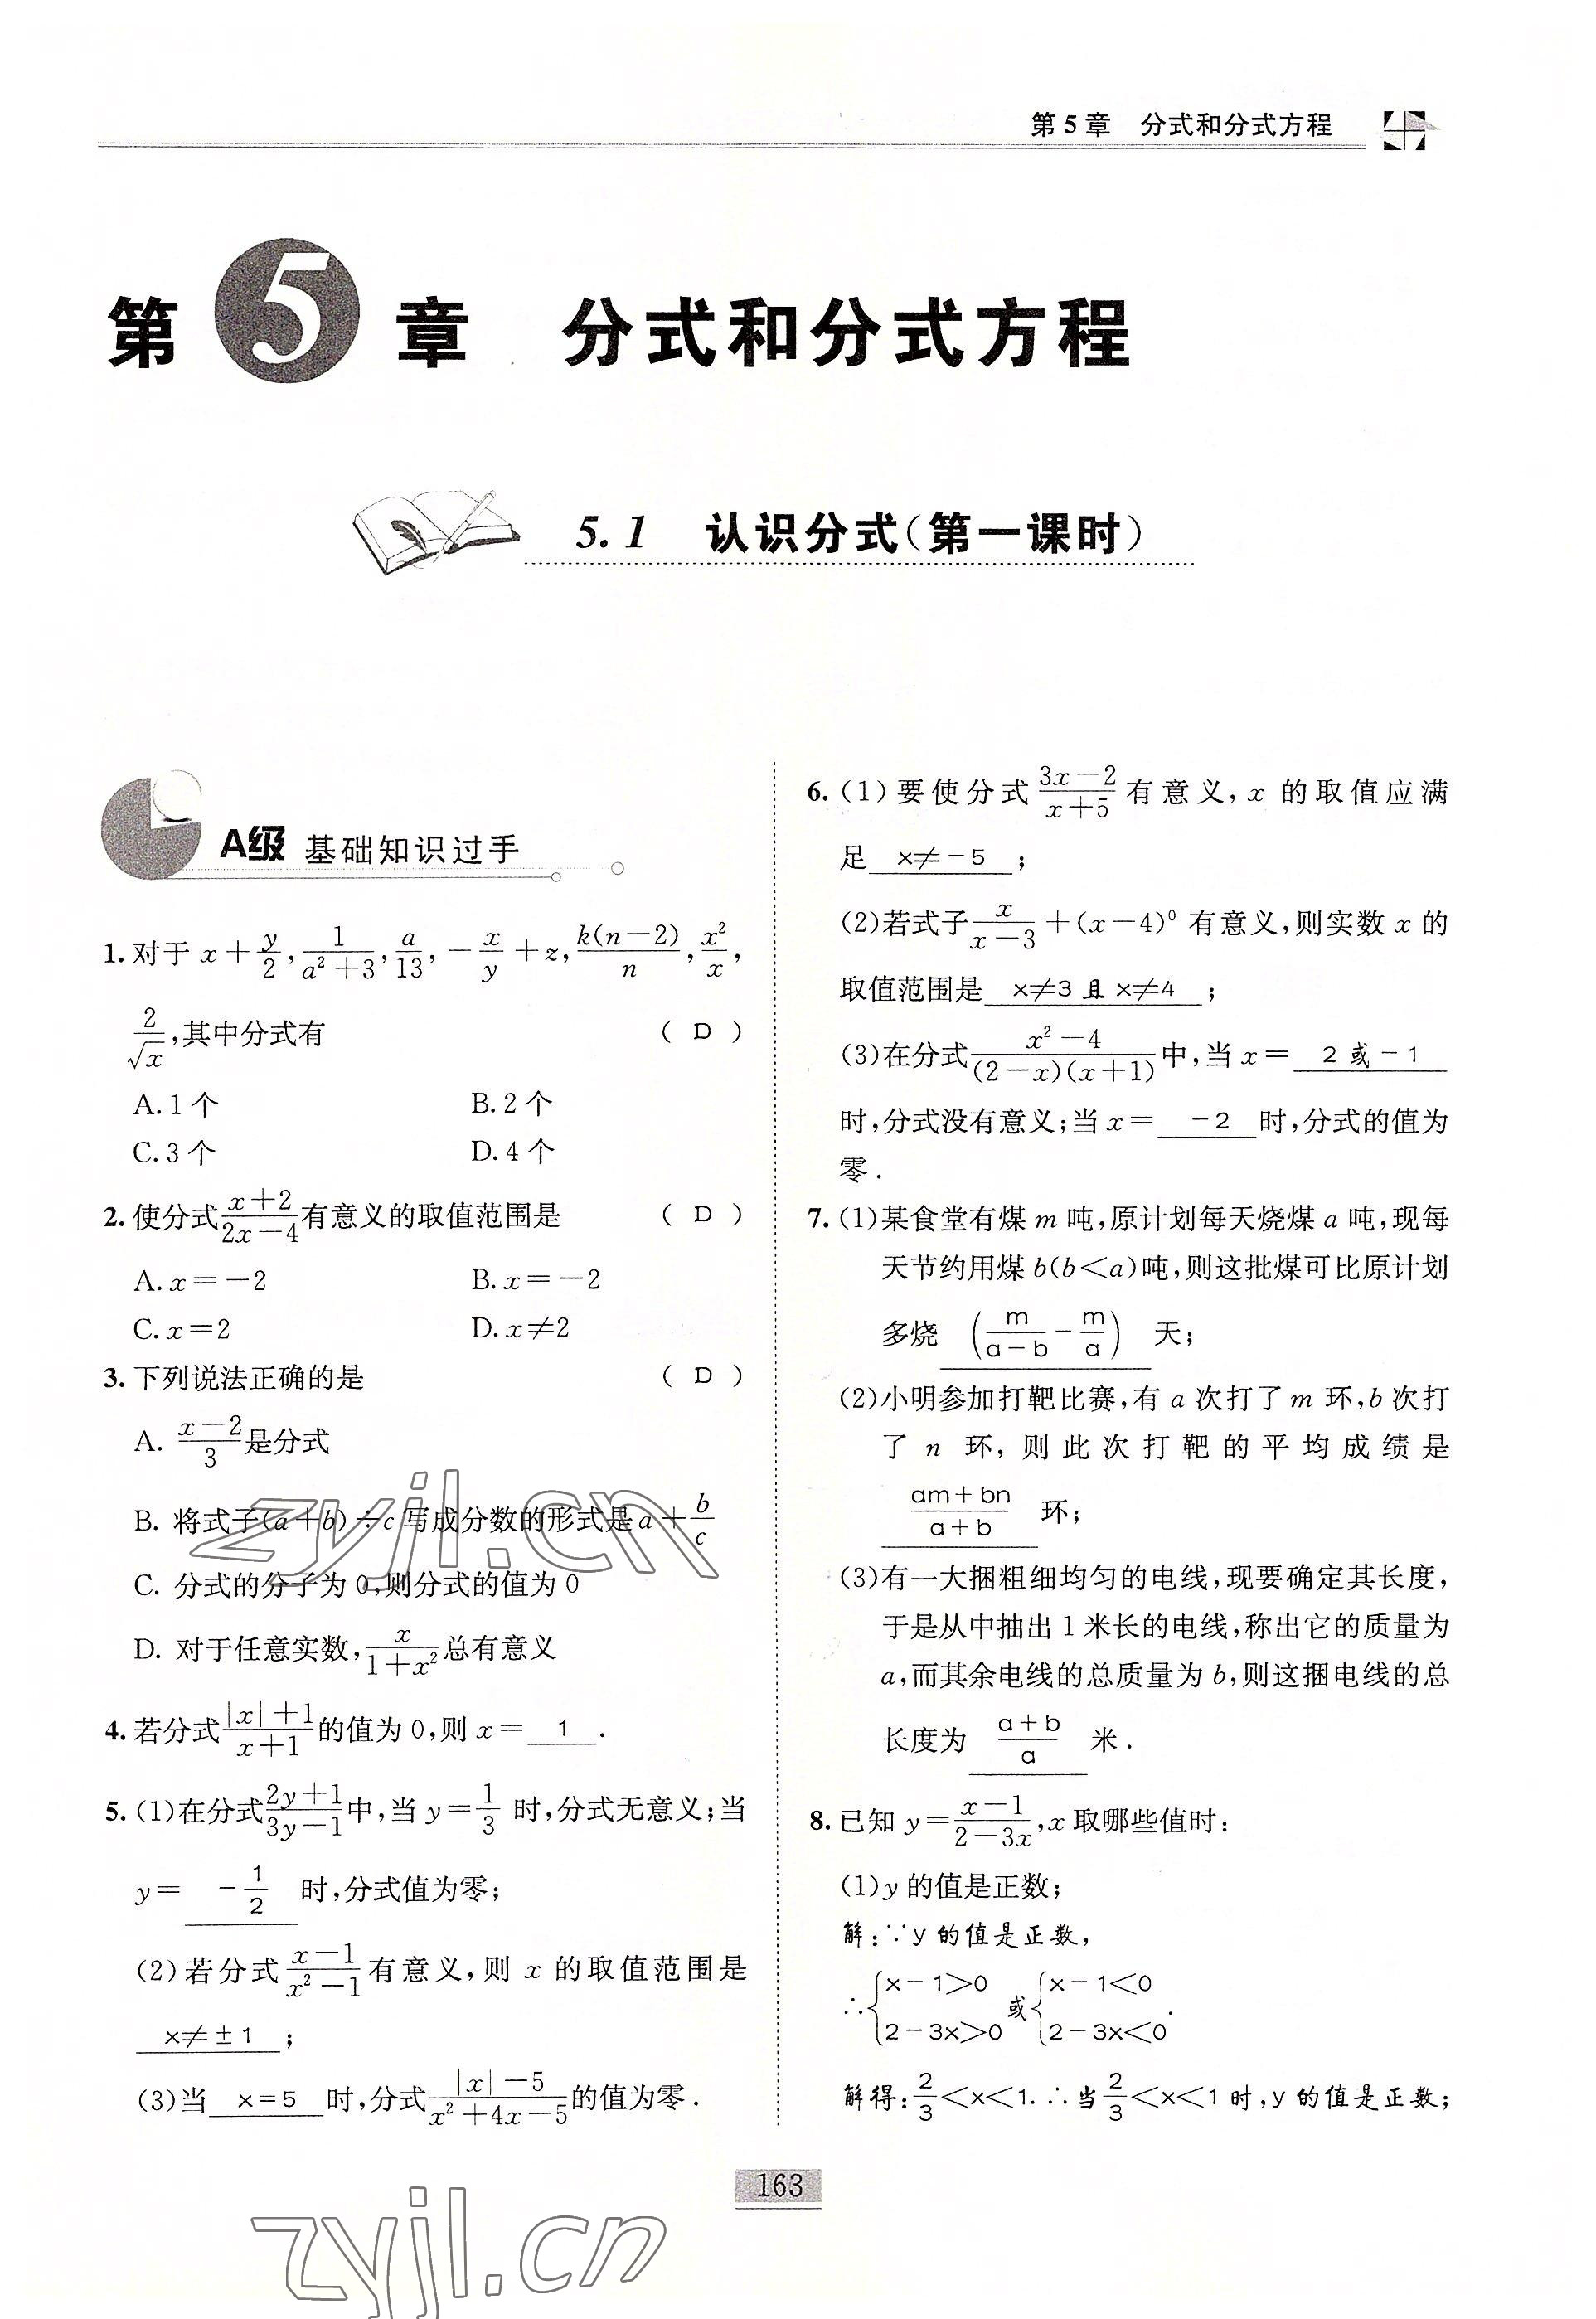 第5章 分式和分式方程
第5章 分式和分式方程
5.1 认识分式(第一课时)
A级 基础知识过手
1. 对于 x+y/2, 1/(a²+3), a/13, -x/y+z, k(n-2)/n, x²/x,
2/√x,其中分式有 ( D )
A. 1个 B. 2个
C. 3个 D. 4个
2. 使分式(x+2)/(2x-4)有意义的取值范围是 ( D )
A. x=-2 B. x=-2
C. x=2 D. x≠2
3. 下列说法正确的是 ( D )
A. (x-2)/3是分式
B. 将式子(a+b)÷c写成分数的形式是a+b/c
C. 分式的分子为0,则分式的值为0
D. 对于任意实数,x/(1+x²)总有意义
4. 若分式(|x|+1)/(x+1)的值为0,则x= 1 .
5. (1)在分式(2y+1)/(3y-1)中,当y=1/3 时,分式无意义;当
y= -1/2 时,分式值为零;
(2)若分式(x-1)/(x²-1)有意义,则 x 的取值范围是
x≠±1 ;
(3)当 x=5 时,分式(|x|-5)/(x²+4x-5)的值为零.
6. (1)要使分式(3x-2)/(x+5)有意义,x 的取值应满
足 x≠-5 ;
(2)若式子x/(x-3)+(x-4)⁰ 有意义,则实数 x 的
取值范围是 x≠3 且 x≠4 ;
(3)在分式(x²-4)/((2-x)(x+1))中,当 x= 2 或 -1
时,分式没有意义;当 x= -2 时,分式的值为
零.
7. (1)某食堂有煤 m 吨,原计划每天烧煤 a 吨,现每
天节约用煤 b(b<a)吨,则这批煤可比原计划
多烧 (m/(a-b)-m/a) 天;
(2)小明参加打靶比赛,有 a 次打了 m 环,b 次打
了 n 环,则此次打靶的平均成绩是
(am+bn)/(a+b) 环;
(3)有一大捆粗细均匀的电线,现要确定其长度,
于是从中抽出 1 米长的电线,称出它的质量为
a,而其余电线的总质量为 b,则这捆电线的总
长度为 (a+b)/a 米.
8. 已知 y=(x-1)/(2-3x),x 取哪些值时:
(1)y 的值是正数;
解:∵y 的值是正数,
∴{x-1>0 或{x-1<0
2-3x>0 2-3x<0.
解得:2/3<x<1.∴当2/3<x<1时,y 的值是正数;
163
zyjl.cn
zyjl.cn